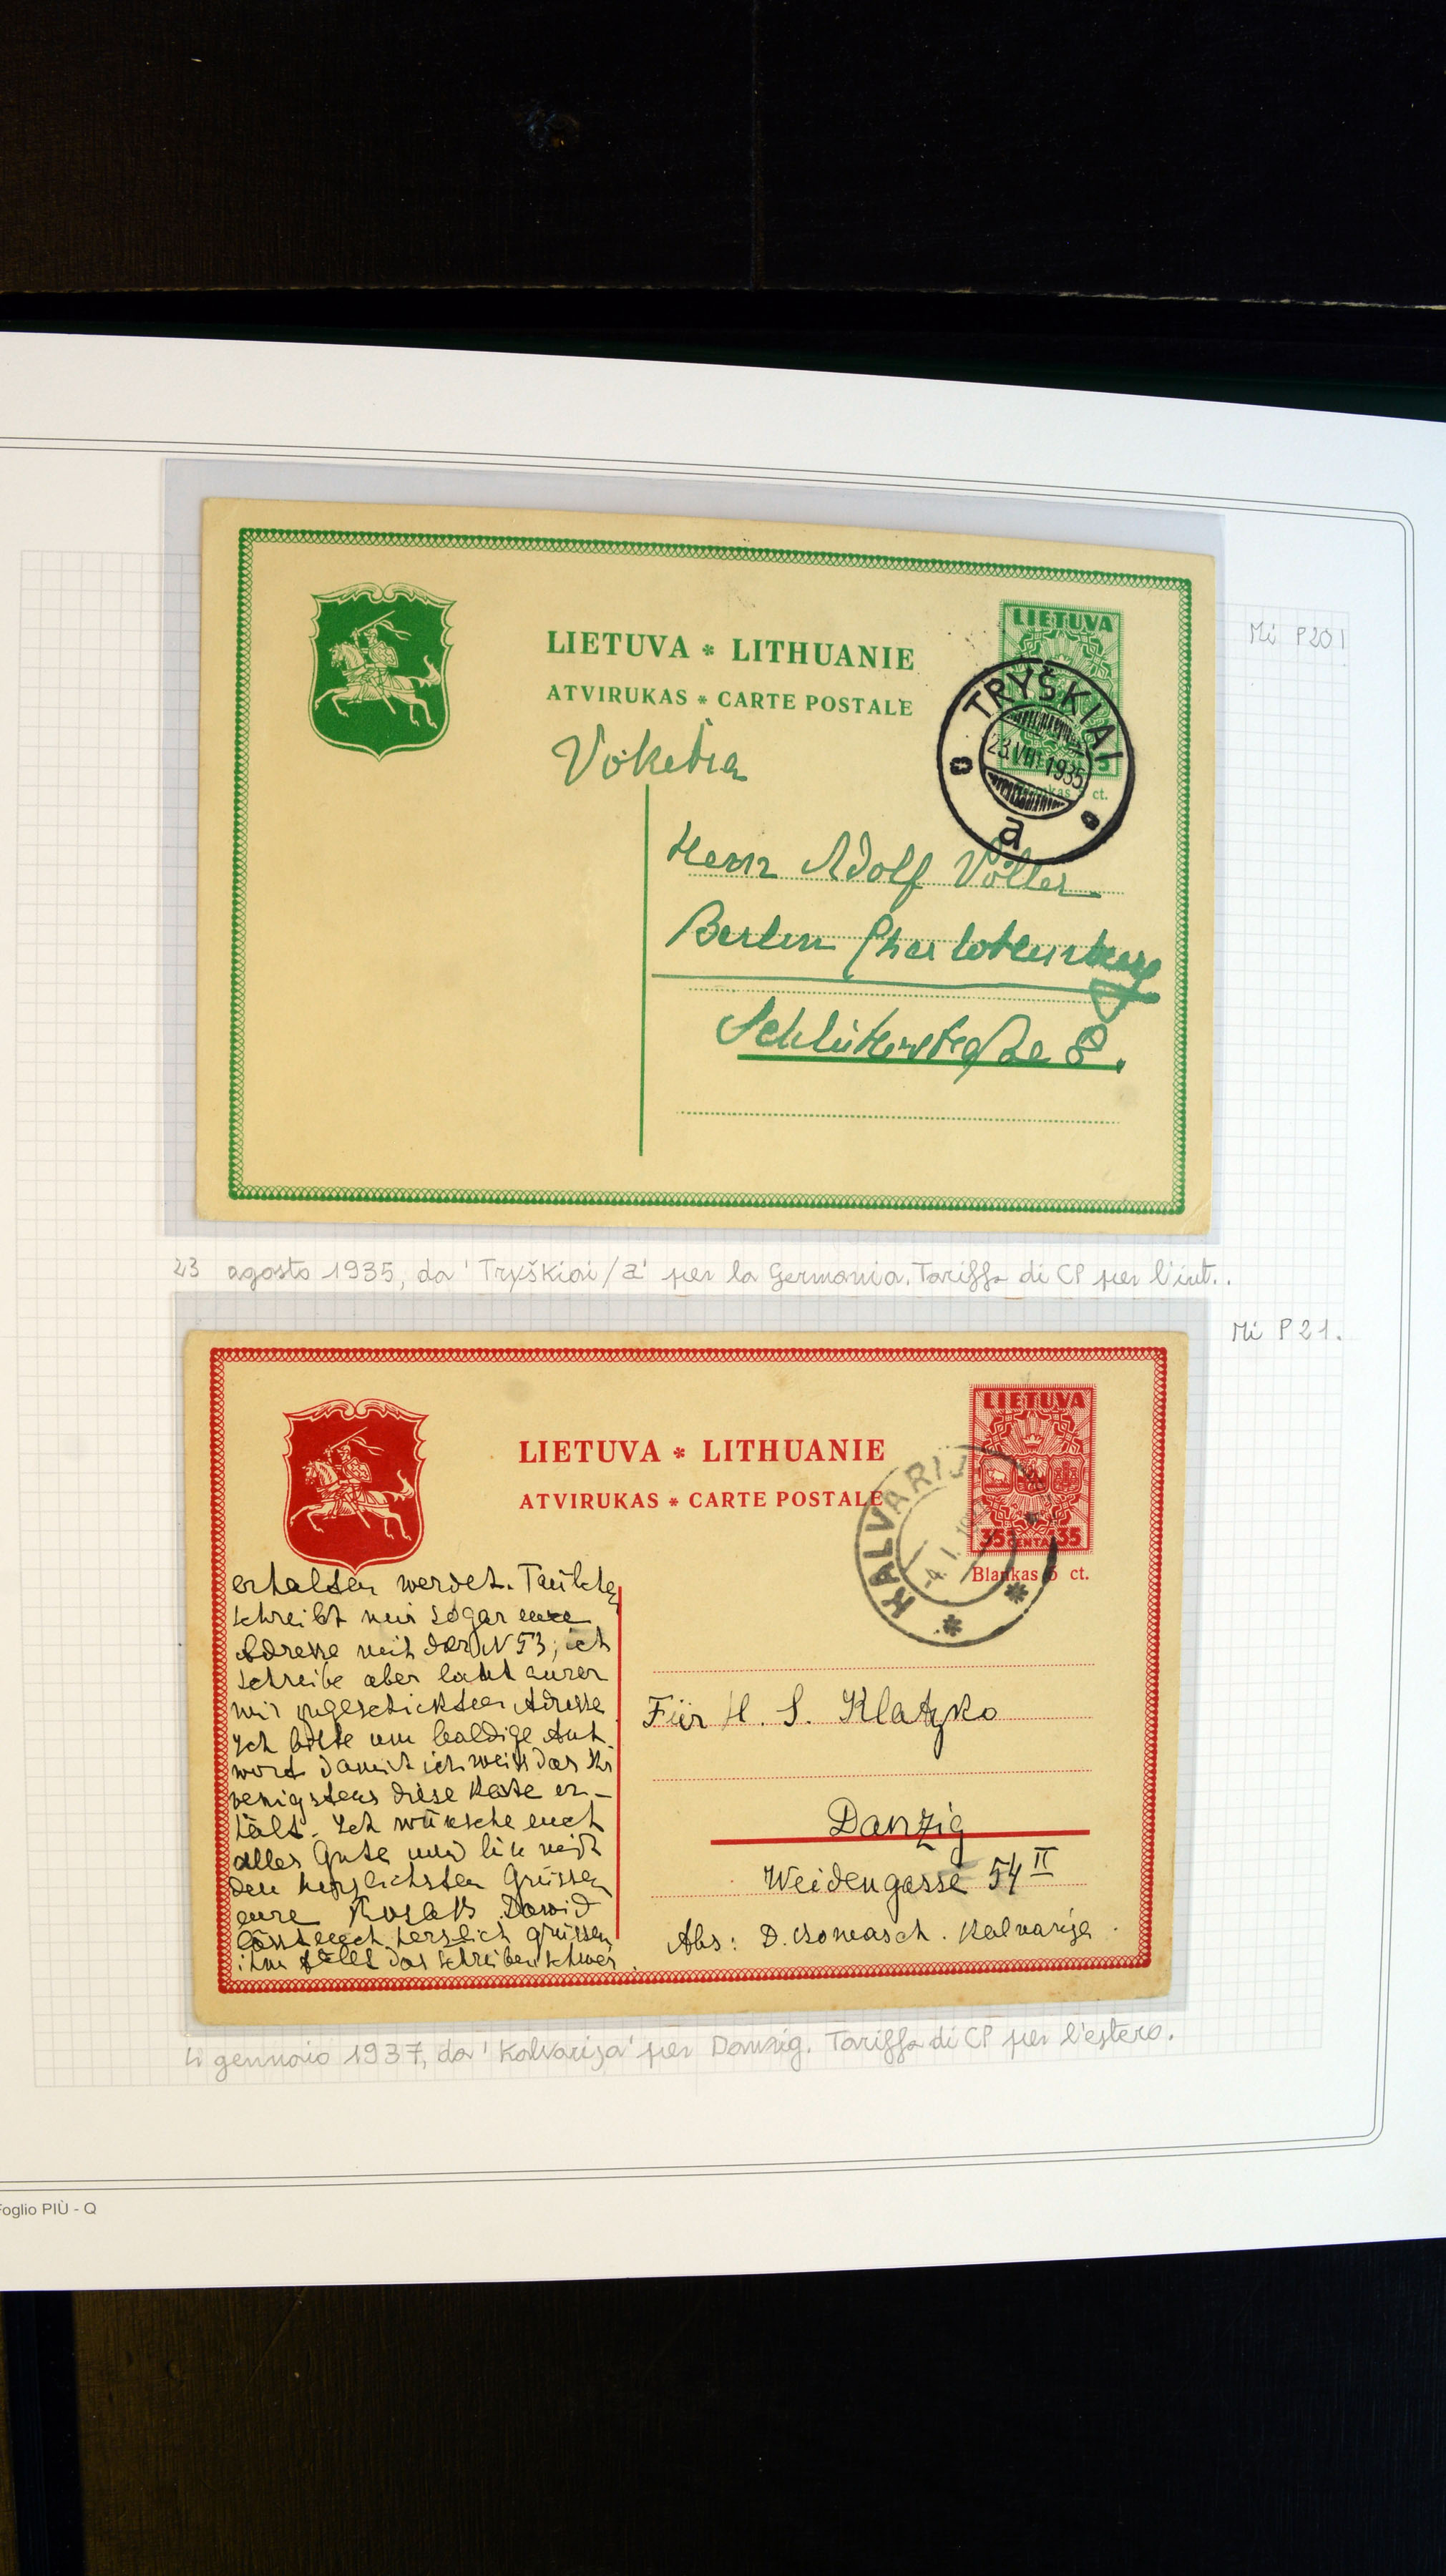 LIETUVA * LITHUANIE
ATVIRUKAS * CARTE POSTALE
LIETUVA
TRYŠKIAI
23.VIII.1935
a
ct.
Mi P20I
Voketia
Herrn Adolf Völler
Berlin Charlottenburg
Schlüterstraße 8.
23 agosto 1935, da 'Tryškiai/a' per la Germania. Tariffa di CP per l'int..
Mi P21.
LIETUVA * LITHUANIE
ATVIRUKAS * CARTE POSTALE
LIETUVA
35 CENTAI 35
Blankas 5 ct.
KALVARIJ
-4.I.
erhalten werdet.
schreibt mir sogar eure
Adresse mit der N 53; ich
schreibe aber laut eurer
mir zugeschickten Adresse.
Ich bitte um baldige Ant
wort damit ich weiss das Ihr
wenigstens diese Karte er-
hält. Ich wünsche euch
alles Gute und bin mit
den herzlichsten Grüssen
eure Dawid
lässt euch herslich grüssen
ihm fällt das schreiben schwer.
Für H. S. Klatzko
Danzig
Weidengasse 54 II
Abs: D. Kalvarija.
4 gennaio 1937, da 'Kalvarija' per Danzig. Tariffa di CP per l'estero.
Foglio PIÙ - Q